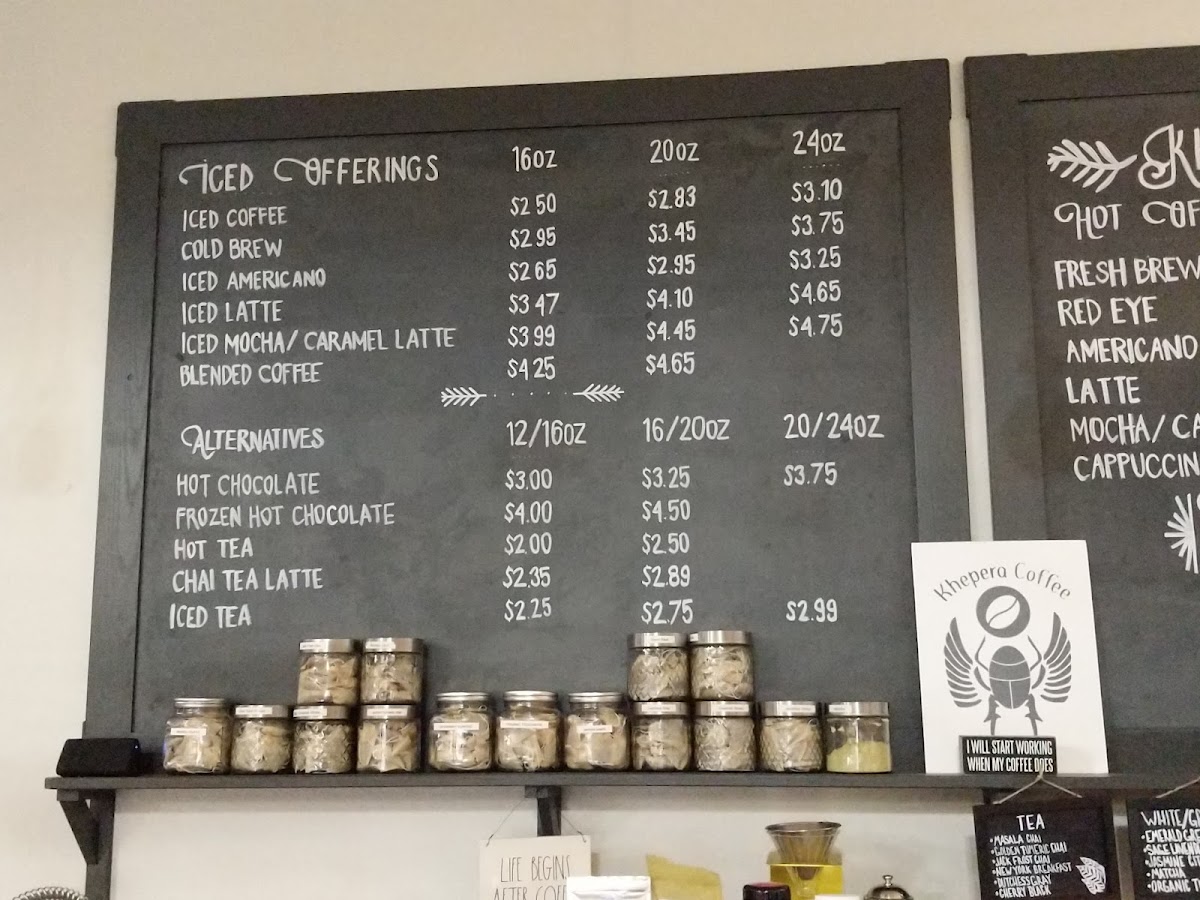 Iced Offerings 16oz 20oz 24oz
Iced Coffee $2.50 $2.83 $3.10
Cold Brew $2.95 $3.45 $3.75
Iced Americano $2.65 $2.95 $3.25
Iced Latte $3.47 $4.10 $4.65
Iced Mocha/Caramel Latte $3.99 $4.45 $4.75
Blended Coffee $4.25 $4.65
Alternatives 12/16oz 16/20oz 20/24oz
Hot Chocolate $3.00 $3.25 $3.75
Frozen Hot Chocolate $4.00 $4.50
Hot Tea $2.00 $2.50
Chai Tea Latte $2.35 $2.89
Iced Tea $2.25 $2.75 $2.99
Hot
Fresh Brew
Red Eye
Americano
Latte
Mocha/Ca
Cappuccin
Khepera Coffee
I WILL START WORKING
WHEN MY COFFEE DOES
LIFE BEGINS
AFTER COFF
TEA
•MASALA CHAI
•GOLDEN TUMERIC CHAI
•JACK FROST CHAI
•NEW YORK BREAKFAST
•DUTCHESS GRAY
•CHERRY BLACK
WHITE/GR
•EMERALD
•SAGE
•JASMINE
•MATCHA
•ORGANIC